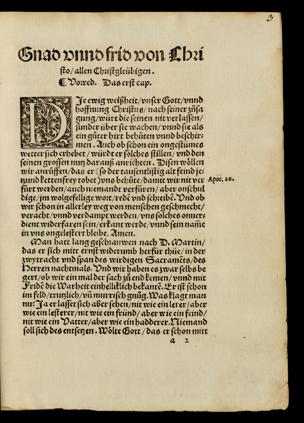 3
Gnad vnnd frid von Chri
sto/allen Christgleubigen.
¶ Vorred. Das erst cap.
DJe ewig weißheit/vnser Gott/vnnd
hoffnung Christus/nach seiner züsa
gung/würt die seinen nit verlassen/
sunder über sie wachen/vnnd sie als
ein güter hirt behüten/vnnd beschir=
men. Auch ob schon ein ongestümes
wetter sich erhebet/würd er sölches stillen/vnd den
seinen grossen nutz dar auß anrichten. Disen wöllen
wir anrüffen/das er (so der tausentlistig alt feind je=
zund
behüte/damit wir nit ver
fürt werden/auch niemandt verfüren/aber onschul
dige/jm wolgefellige wort/redē vnd schreibē. Vnd ob
wir schon in allerley weg von menschen geschmecht/
veracht/vnnd verdampt werden/vns solches onuer=
dient widerfaren sein/erkant werde/vnnd sein namē
in vns ongelestert bleibe. Amen.
Apoc. 20.
Man hatt lang geschauwen nach D. Martin/
das er sich mitt ernst widerumb herfür thüe/in der
zwytracht vnd span des wirdigen Sacramēts/des
Herren nachtmals. Vnd wir haben es zwar selbs be
gert/ob wir ein mal der sach zü end kemen/vnnd mit
Fridē die Warheit einhelliklich bekantē. Er ist schon
im feld/trutzlich/vñ murrisch gnüg. Was klagt man
nun: Ja er lasset sich aber sehen/nit wie ein lerer/aber
wie ein lesterer/nit wie ein fründ/aber wie ein feind/
nit wie ein Vatter/aber wie ein hadderer. Niemand
soll sich des entsetzen. Wölte Gott/das er schon mitt
a 2